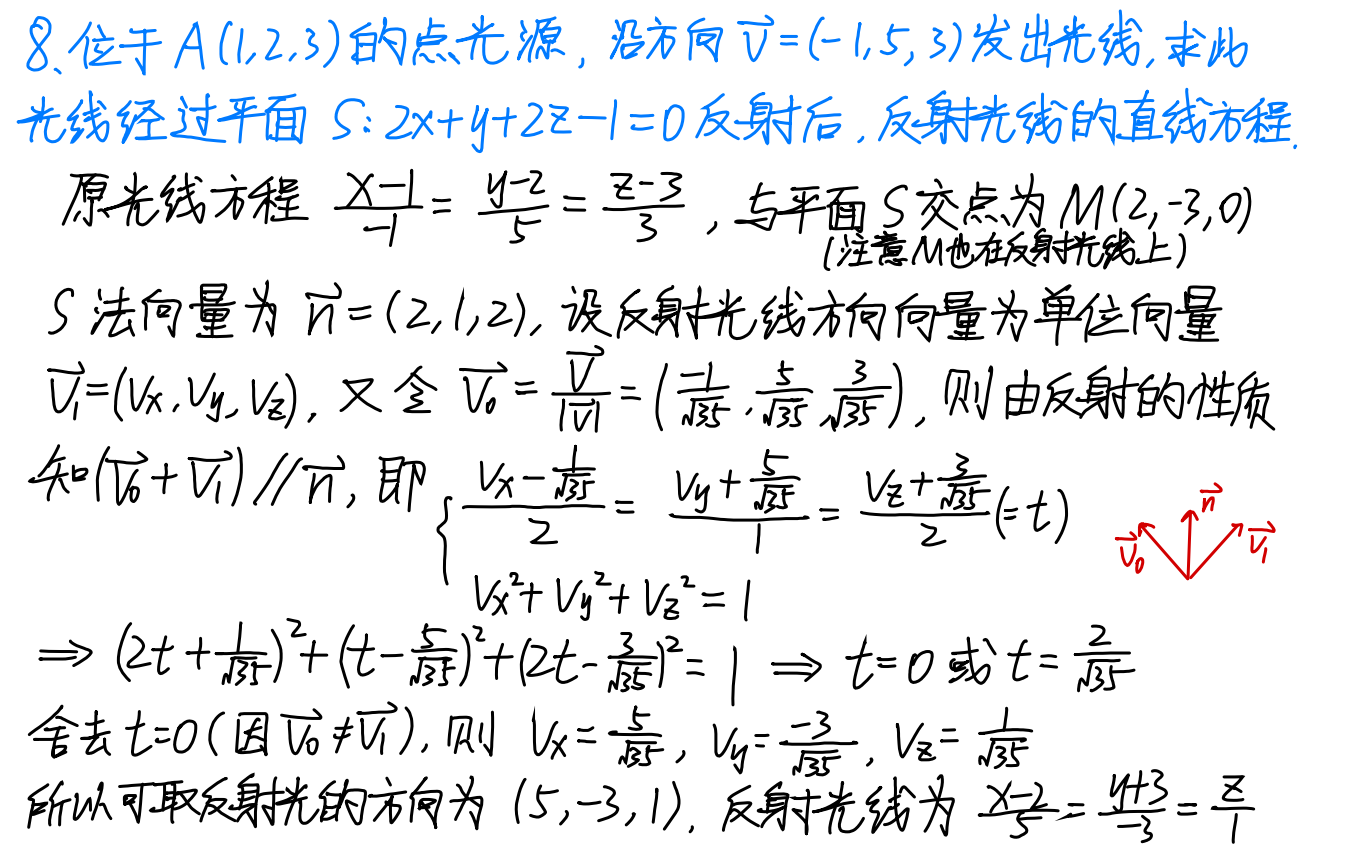 8、位于A(1,2,3)的点光源，沿方向 $\vec{v}$=(-1,5,3)发出光线,求此
光线经过平面 S: 2x+y+2z-1=0反射后,反射光线的直线方程.
原光线方程 $\frac{x-1}{-1}=\frac{y-2}{5}=\frac{z-3}{3}$，与平面S交点为M(2,-3,0)
(注意M也在反射光线上)
S法向量为 $\vec{n}$=(2,1,2), 设反射光线方向向量为单位向量
$\vec{v_1}=(v_x,v_y,v_z)$, 又令 $\vec{v_0}=\frac{\vec{v}}{|\vec{v}|}=(\frac{-1}{\sqrt{35}},\frac{5}{\sqrt{35}},\frac{3}{\sqrt{35}})$, 则由反射的性质
知$(\vec{v_0}+\vec{v_1})//\vec{n}$, 即 $\begin{cases}\frac{v_x-\frac{1}{\sqrt{35}}}{2}=\frac{v_y+\frac{5}{\sqrt{35}}}{1}=\frac{v_z+\frac{3}{\sqrt{35}}}{2}(=t)\\ v_x^2+v_y^2+v_z^2=1\end{cases}$
$\vec{v_0}$ $\vec{n}$ $\vec{v_1}$
$\Rightarrow (2t+\frac{1}{\sqrt{35}})^2+(t-\frac{5}{\sqrt{35}})^2+(2t-\frac{3}{\sqrt{35}})^2=1 \Rightarrow t=0$ 或 $t=\frac{2}{\sqrt{35}}$
舍去t=0(因$\vec{v_0}\neq\vec{v_1}$), 则 $v_x=\frac{5}{\sqrt{35}}, v_y=\frac{-3}{\sqrt{35}}, v_z=\frac{1}{\sqrt{35}}$
所以可取反射光的方向为 (5,-3,1), 反射光线为 $\frac{x-2}{5}=\frac{y+3}{-3}=\frac{z}{1}$